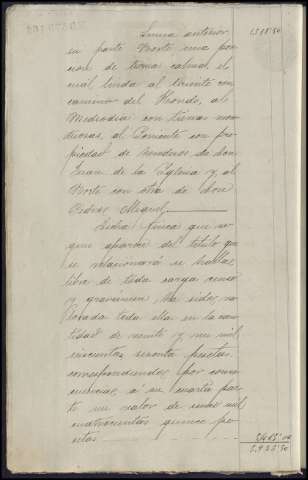 Suma anterior 1518'50
su parte Norte una por-
cion de tierra calma, el
cual linda al Levante con
camino del Rhondo, al
Mediodia con tierras
al Poniente con pro-
piedad de herederos de don
Juan de la Iglesia y al
Norte con otra de don
Miguel
Dicha finca que se-
gun aparece del titulo que
se relacionará se halla
libre de toda carga censo
y gravámen ha sido va-
lorada toda ella en la can-
tidad de veinte y un mil
sesenta pesetas
correspondiendo por conse-
cuencia, á su cuarta par-
te un valor de cinco mil
cuatrocientas quince pe-
setas 5415'00